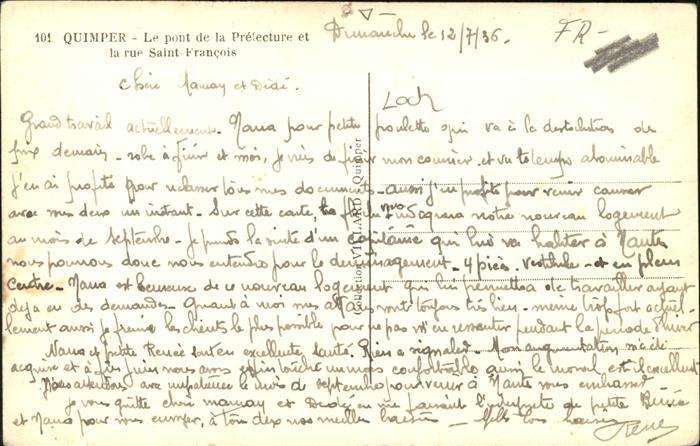 101 QUIMPER - Le pont de la Préfecture et
la rue Saint-François
Dimanche le 12/7/36.
FR-
Chère Mamay et Dédé.
Loch
Grand travail actuellement. Nana pour petite poulette qui va à la distribution de
prix demain - robe à finir et moi, je viens de finir mon courrier et vu le temps abominable
j'en ai profité pour reclasser tous mes documents - aussi j'en profite pour venir causer
avec mes deux un instant. Sur cette carte, la indiquera notre nouveau logement
au mois de septembre - je prends la suite d'un capitaine qui lui va habiter à Nantes
nous pourrons donc nous entendre pour le déménagement - 4 pièces. Vestibule - et en plein
centre - Nana est heureuse de ce nouveau logement qui lui permettra de travailler ayant
déjà eu des demandes - Quant à moi mes affaires vont toujours très bien - même trop fort actuel-
lement aussi je freine les clients le plus possible pour ne pas m'en ressentir pendant la période d'hiver
Nana et petite Renée sont en excellente santé. Rien à signaler - Mon augmentation m'a été
acquise et à fin juin nous avons touché un mois confortable aussi le moral est excellent
Nous attendons avec impatience le mois de septembre pour venir à Nantes vous embrasser -
je vous quitte chère mamay et Dédé en me faisant l'interprète de petite Renée
et Nana pour vous envoyer, à tous deux nos meilleurs baisers -
René
Collection VILLARD Quimper